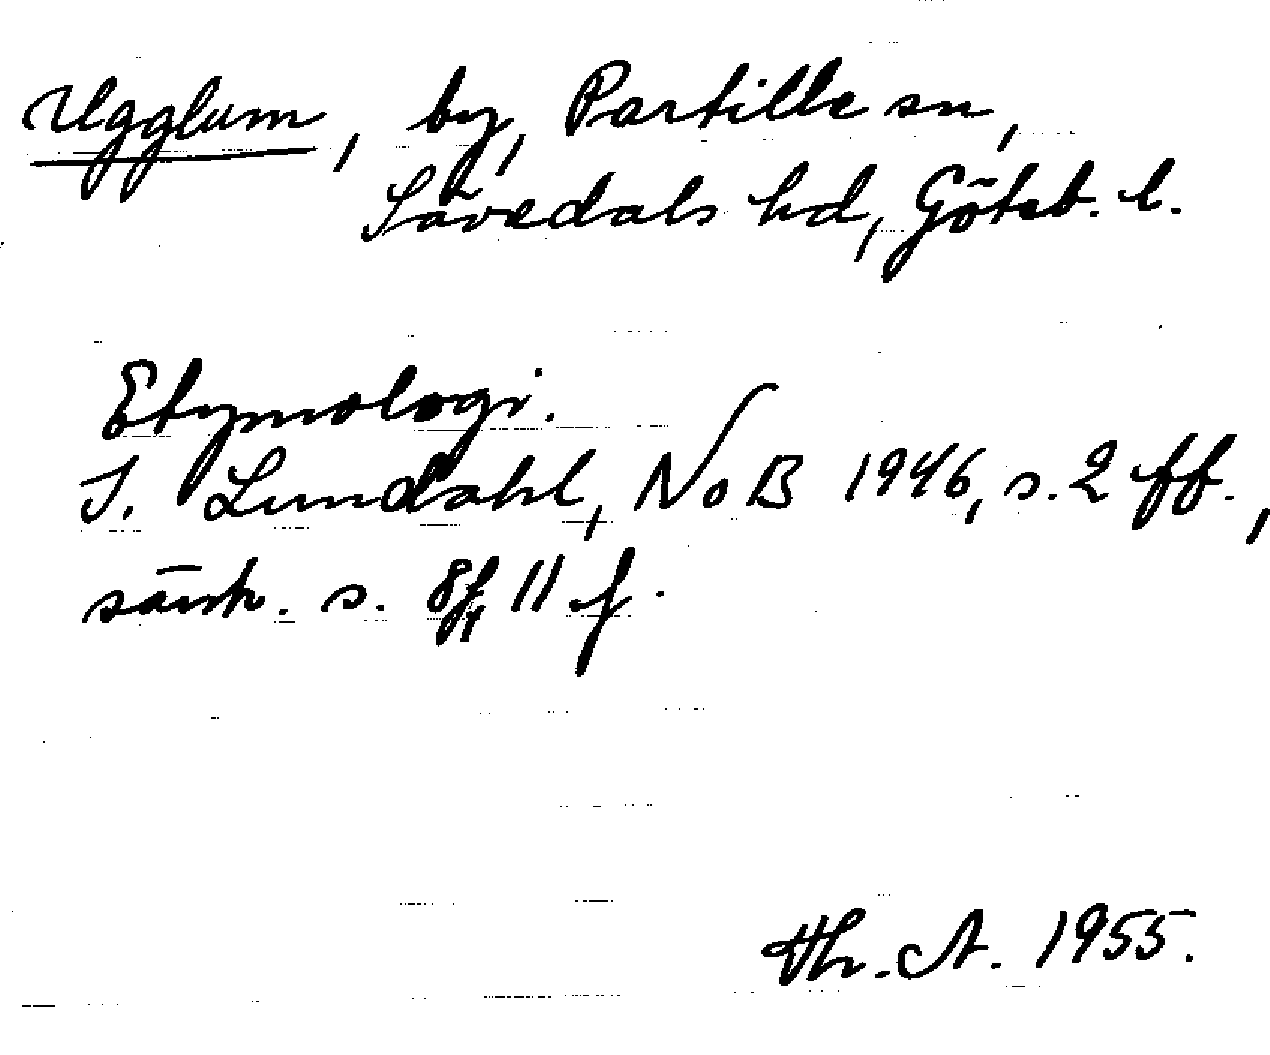 Ugglum, by, Partille sn,
Sävedals hd, Göteb. l.
Etymologi.
I. Lundahl, NoB 1946, s. 2 ff.,
särsk. s. 8f, 11 f.
Hr. A. 1955.